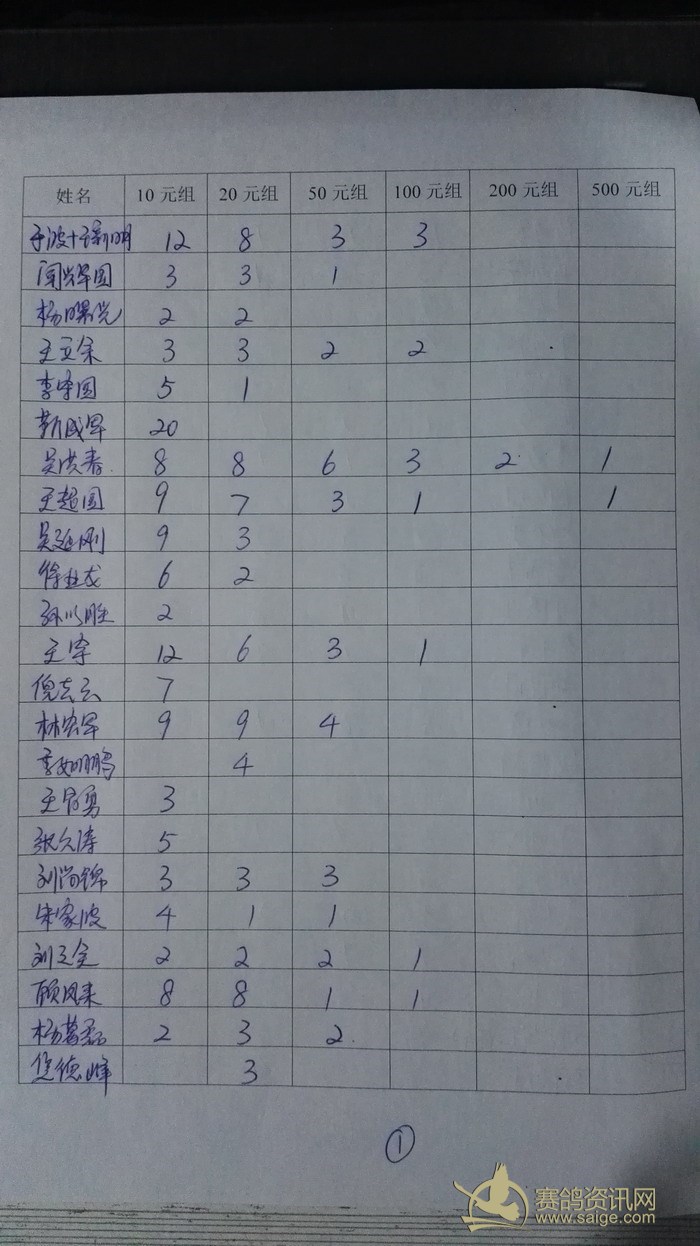 姓名 10元组 20元组 50元组 100元组 200元组 500元组
于波+张新明 12 8 3 3
闻兴军国 3 3 1
杨曙光 2 2
王立余 3 3 2 2
李宇国 5 1
靳成军 20
吴洪春 8 8 6 3 2 1
王超国 9 7 3 1 1
吴延刚 9 3
徐世龙 6 2
孙以胜 2
王宇 12 6 3 1
倪志云 7
林宏军 9 9 4
李如鹏 4
王勇 3
张久涛 5
刘尚锦 3 3 3
朱家波 4 1 1
刘立全 2 2 2 1
顾凤来 8 8 1 1
杨葛磊 2 3 2
焦德峰 3
①
赛鸽资讯网
www.saige.com